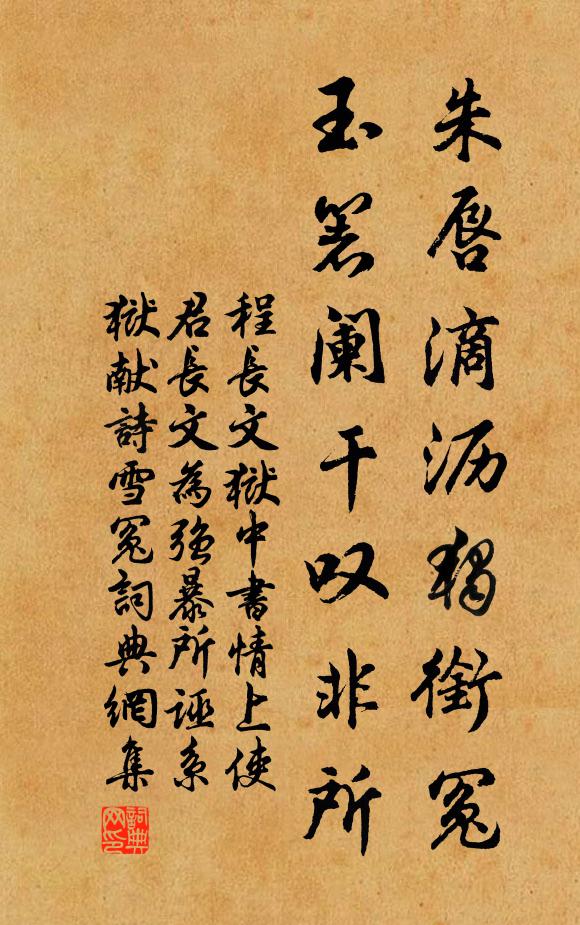 朱唇滴沥独銜冤
玉箸阑干叹非所
程長文獄中書情上使
君長文為強暴所誣系
獄献詩雪冤詞典網集
詞典网印